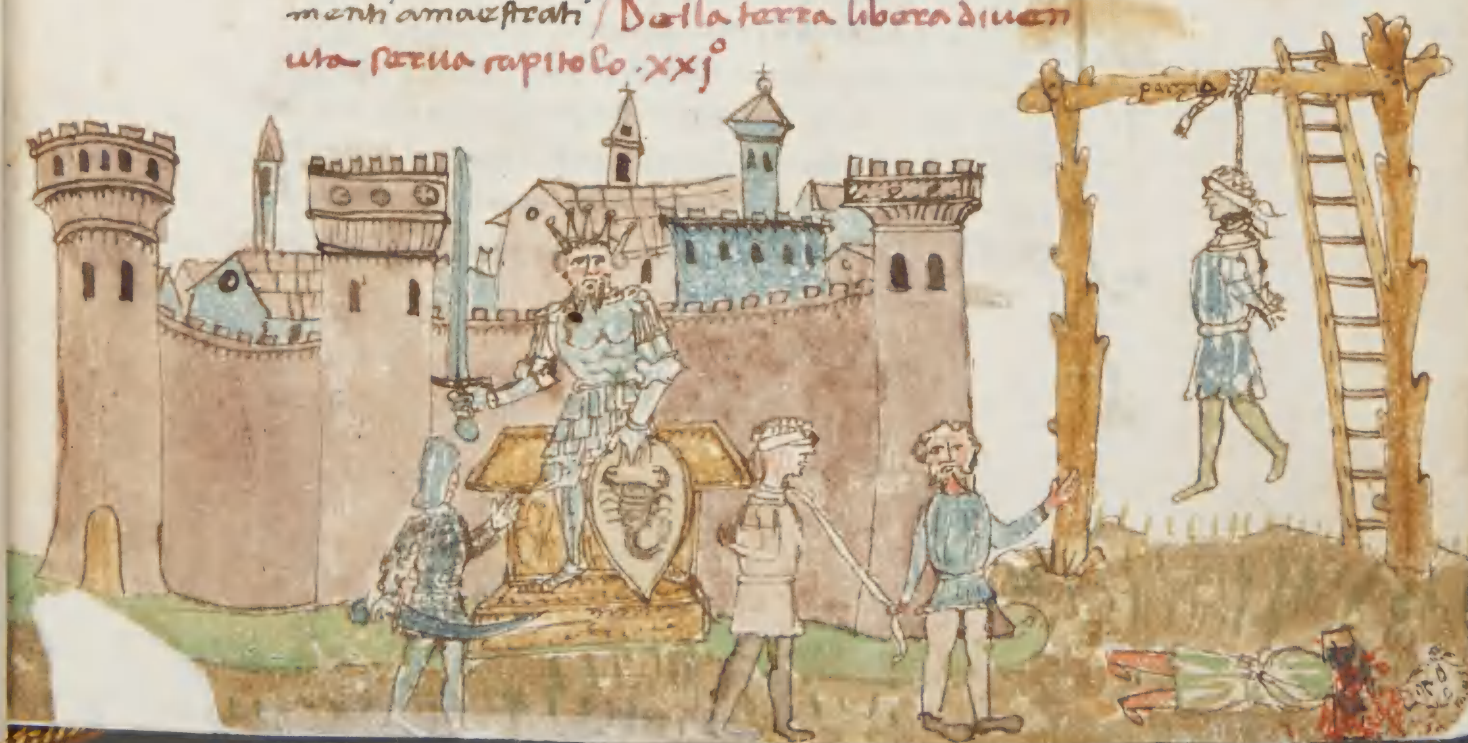 menti amaestrati / Della terra libera diven
uta serua capitolo .xxj°